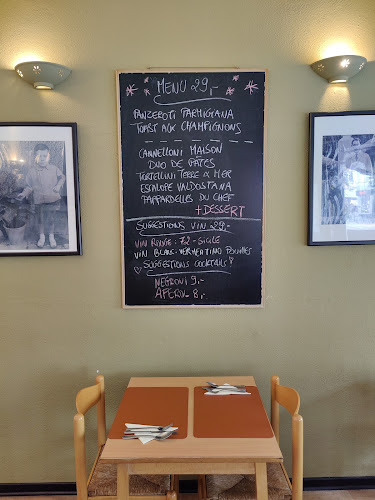 MENU 29,-
PANZEROTI PARMIGIANA
TOAST AUX CHAMPIGNONS
CANNELLONI MAISON
DUO DE PÂTES
TORTELLINI TERRE & MER
ESCALOPE VALDOSTANA
PAPPARDELLES DU CHEF
+ DESSERT
SUGGESTIONS VIN 29.-
VIN ROUGE: 72 - SICILE
VIN BLANC: VERMENTINO
SUGGESTIONS COCKTAILS
NEGRONI 9.-
APEROL 8,-